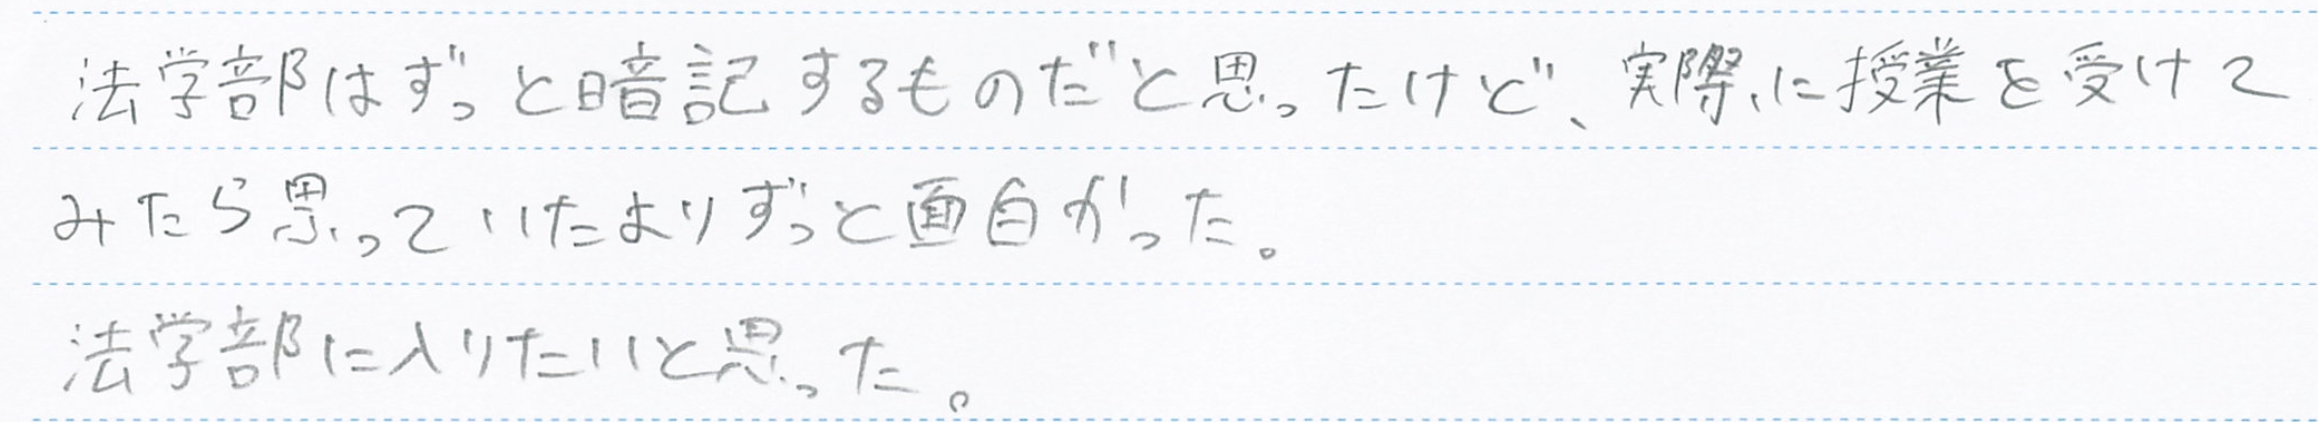 法学部はずっと暗記するものだと思ったけど、実際に授業を受けて
みたら思っていたよりずっと面白かった。
法学部に入りたいと思った。